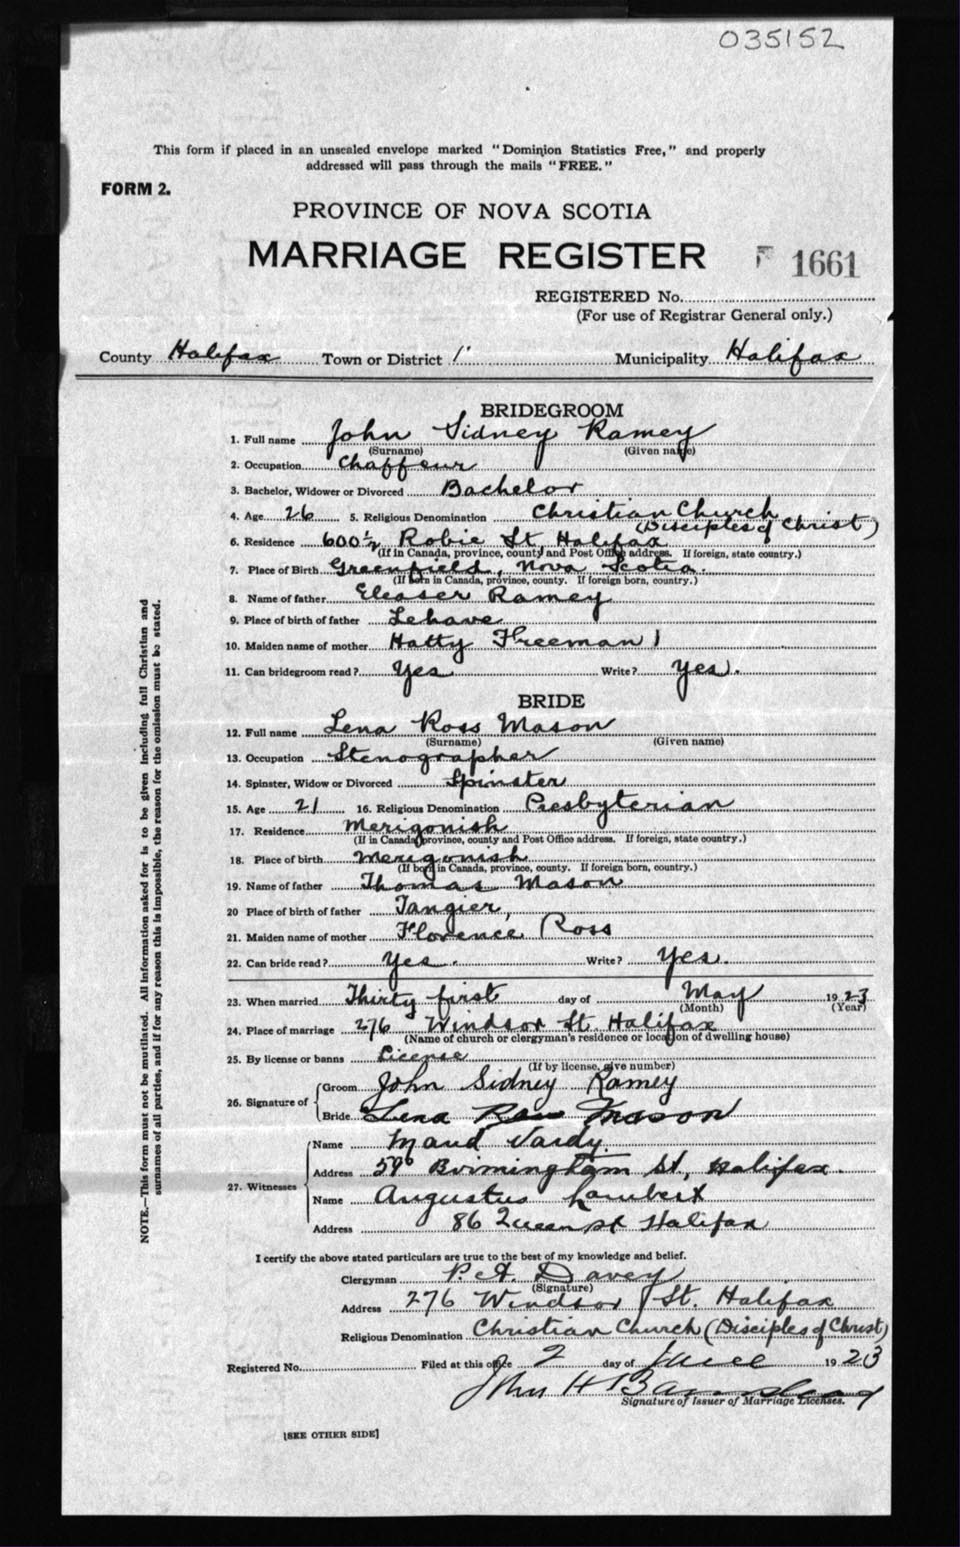 035152
This form if placed in an unsealed envelope marked "Dominion Statistics Free," and properly
addressed will pass through the mails "FREE."
FORM 2.
PROVINCE OF NOVA SCOTIA
MARRIAGE REGISTER 1661
REGISTERED No.
(For use of Registrar General only.)
County Halifax Town or District Municipality Halifax
BRIDEGROOM
1. Full name John Sidney Ramey
(Surname) (Given name)
2. Occupation Chaffeur
3. Bachelor, Widower or Divorced Bachelor
4. Age 26 5. Religious Denomination Christian Church
(Disciples of Christ)
6. Residence 600½ Robie St Halifax
(If in Canada, province, county and Post Office address. If foreign, state country.)
7. Place of Birth Greenfield, Nova Scotia.
(If born in Canada, province, county. If foreign born, country.)
8. Name of father Eleaser Ramey
9. Place of birth of father Lehave
10. Maiden name of mother Hatty Freeman
11. Can bridegroom read? Yes Write? Yes.
BRIDE
12. Full name Lena Ross Mason
(Surname) (Given name)
13. Occupation Stenographer
14. Spinster, Widow or Divorced Spinster
15. Age 21 16. Religious Denomination Presbyterian
17. Residence Merigonish
(If in Canada, province, county and Post Office address. If foreign, state country.)
18. Place of birth Merigonish
(If born in Canada, province, county. If foreign born, country.)
19. Name of father Thomas Mason
20 Place of birth of father Tangier,
21. Maiden name of mother Florence Ross
22. Can bride read? Yes. Write? Yes.
23. When married Thirty first day of May 1923
(Month) (Year)
24. Place of marriage 276 Windsor St. Halifax
(Name of church or clergyman's residence or location of dwelling house)
25. By license or banns License
(If by license, give number)
26. Signature of Groom John Sidney Ramey
Bride Lena Ross Mason
27. Witnesses
Name Maud Vardy
Address Birmingham St, Halifax.
Name Augustus Lambert
Address 86 Queen st Halifax
I certify the above stated particulars are true to the best of my knowledge and belief.
Clergyman P. A. Davey
(Signature)
Address 276 Windsor St. Halifax
Religious Denomination Christian Church (Disciples of Christ)
Registered No. Filed at this office 2 day of June 1923
John H Barnstead
Signature of Issuer of Marriage Licenses.
[SEE OTHER SIDE]
NOTE.—This form must not be mutilated. All information asked for is to be given including full Christian and
surnames of all parties, and if for any reason this is impossible, the reason for the omission must be stated.